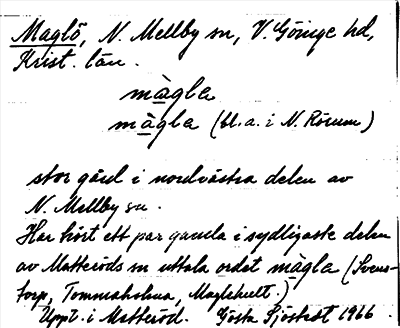 Maglö, N. Mellby sn, V. Göinge hd,
Krist. län.
màgla
màgla (bl.a. i N. Rörum)
stor gård i nordvästra delen av
N. Mellby sn.
Har hört ett par gamla i sydligaste delen
av Matteröds sn uttala ordet màgla (Svens-
torp, Tommaholma, Maglehult.)
Uppt. i Matteröd. Gösta Sjöstedt 1966